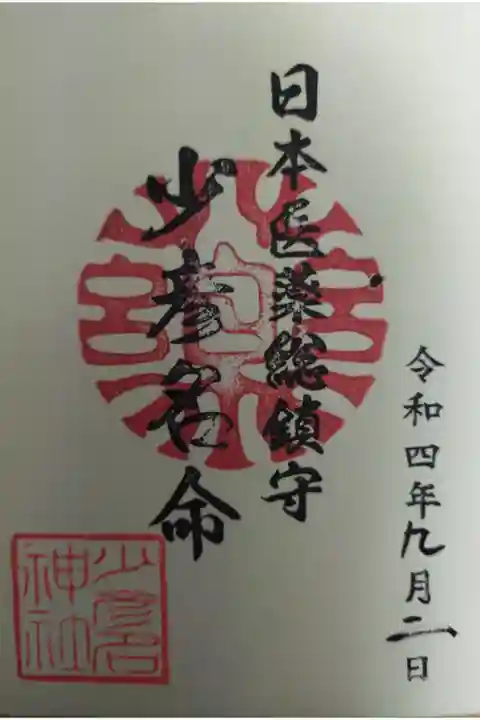 令和四年九月二日
日本医薬総鎮守
少彦名命
少彦名
神社